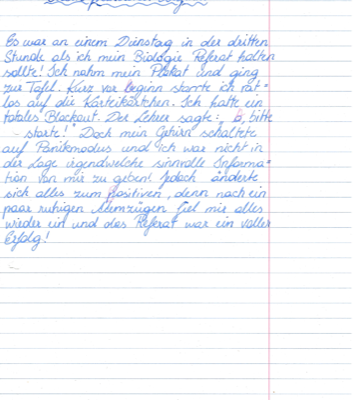 Es war an einem Dienstag in der dritten
Stunde als ich mein Biologie Referat halten
sollte! Ich nahm mein Plakat und ging
zur Tafel. Kurz vor beginn starrte ich rat=
los auf die Karteikärtchen. Ich hatte ein
totales Blackout. Der Lehrer sagte: " bitte
starte!" Doch mein Gehirn schaltete
auf Panikmodus und ich war nicht in
der Lage irgendwelche sinnvolle Informa=
tion von mir zu geben! Jedoch änderte
sich alles zum positiven, denn nach ein
paar ruhigen Atemzügen fiel mir alles
wieder ein und das Referat war ein voller
Erfolg!